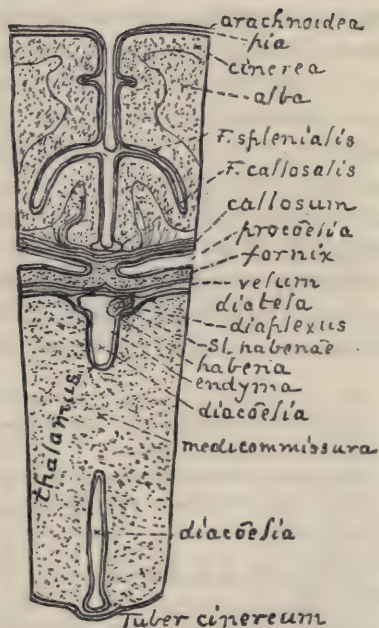 arachnoidea
pia
cinerea
alba
F. splenialis
F. callosalis
callosum
procœlia
fornix
velum
diatela
diaplexus
Sl. habenæ
habena
endyma
diacœlia
medicommissura
thalamus
diacœlia
Tuber cinereum